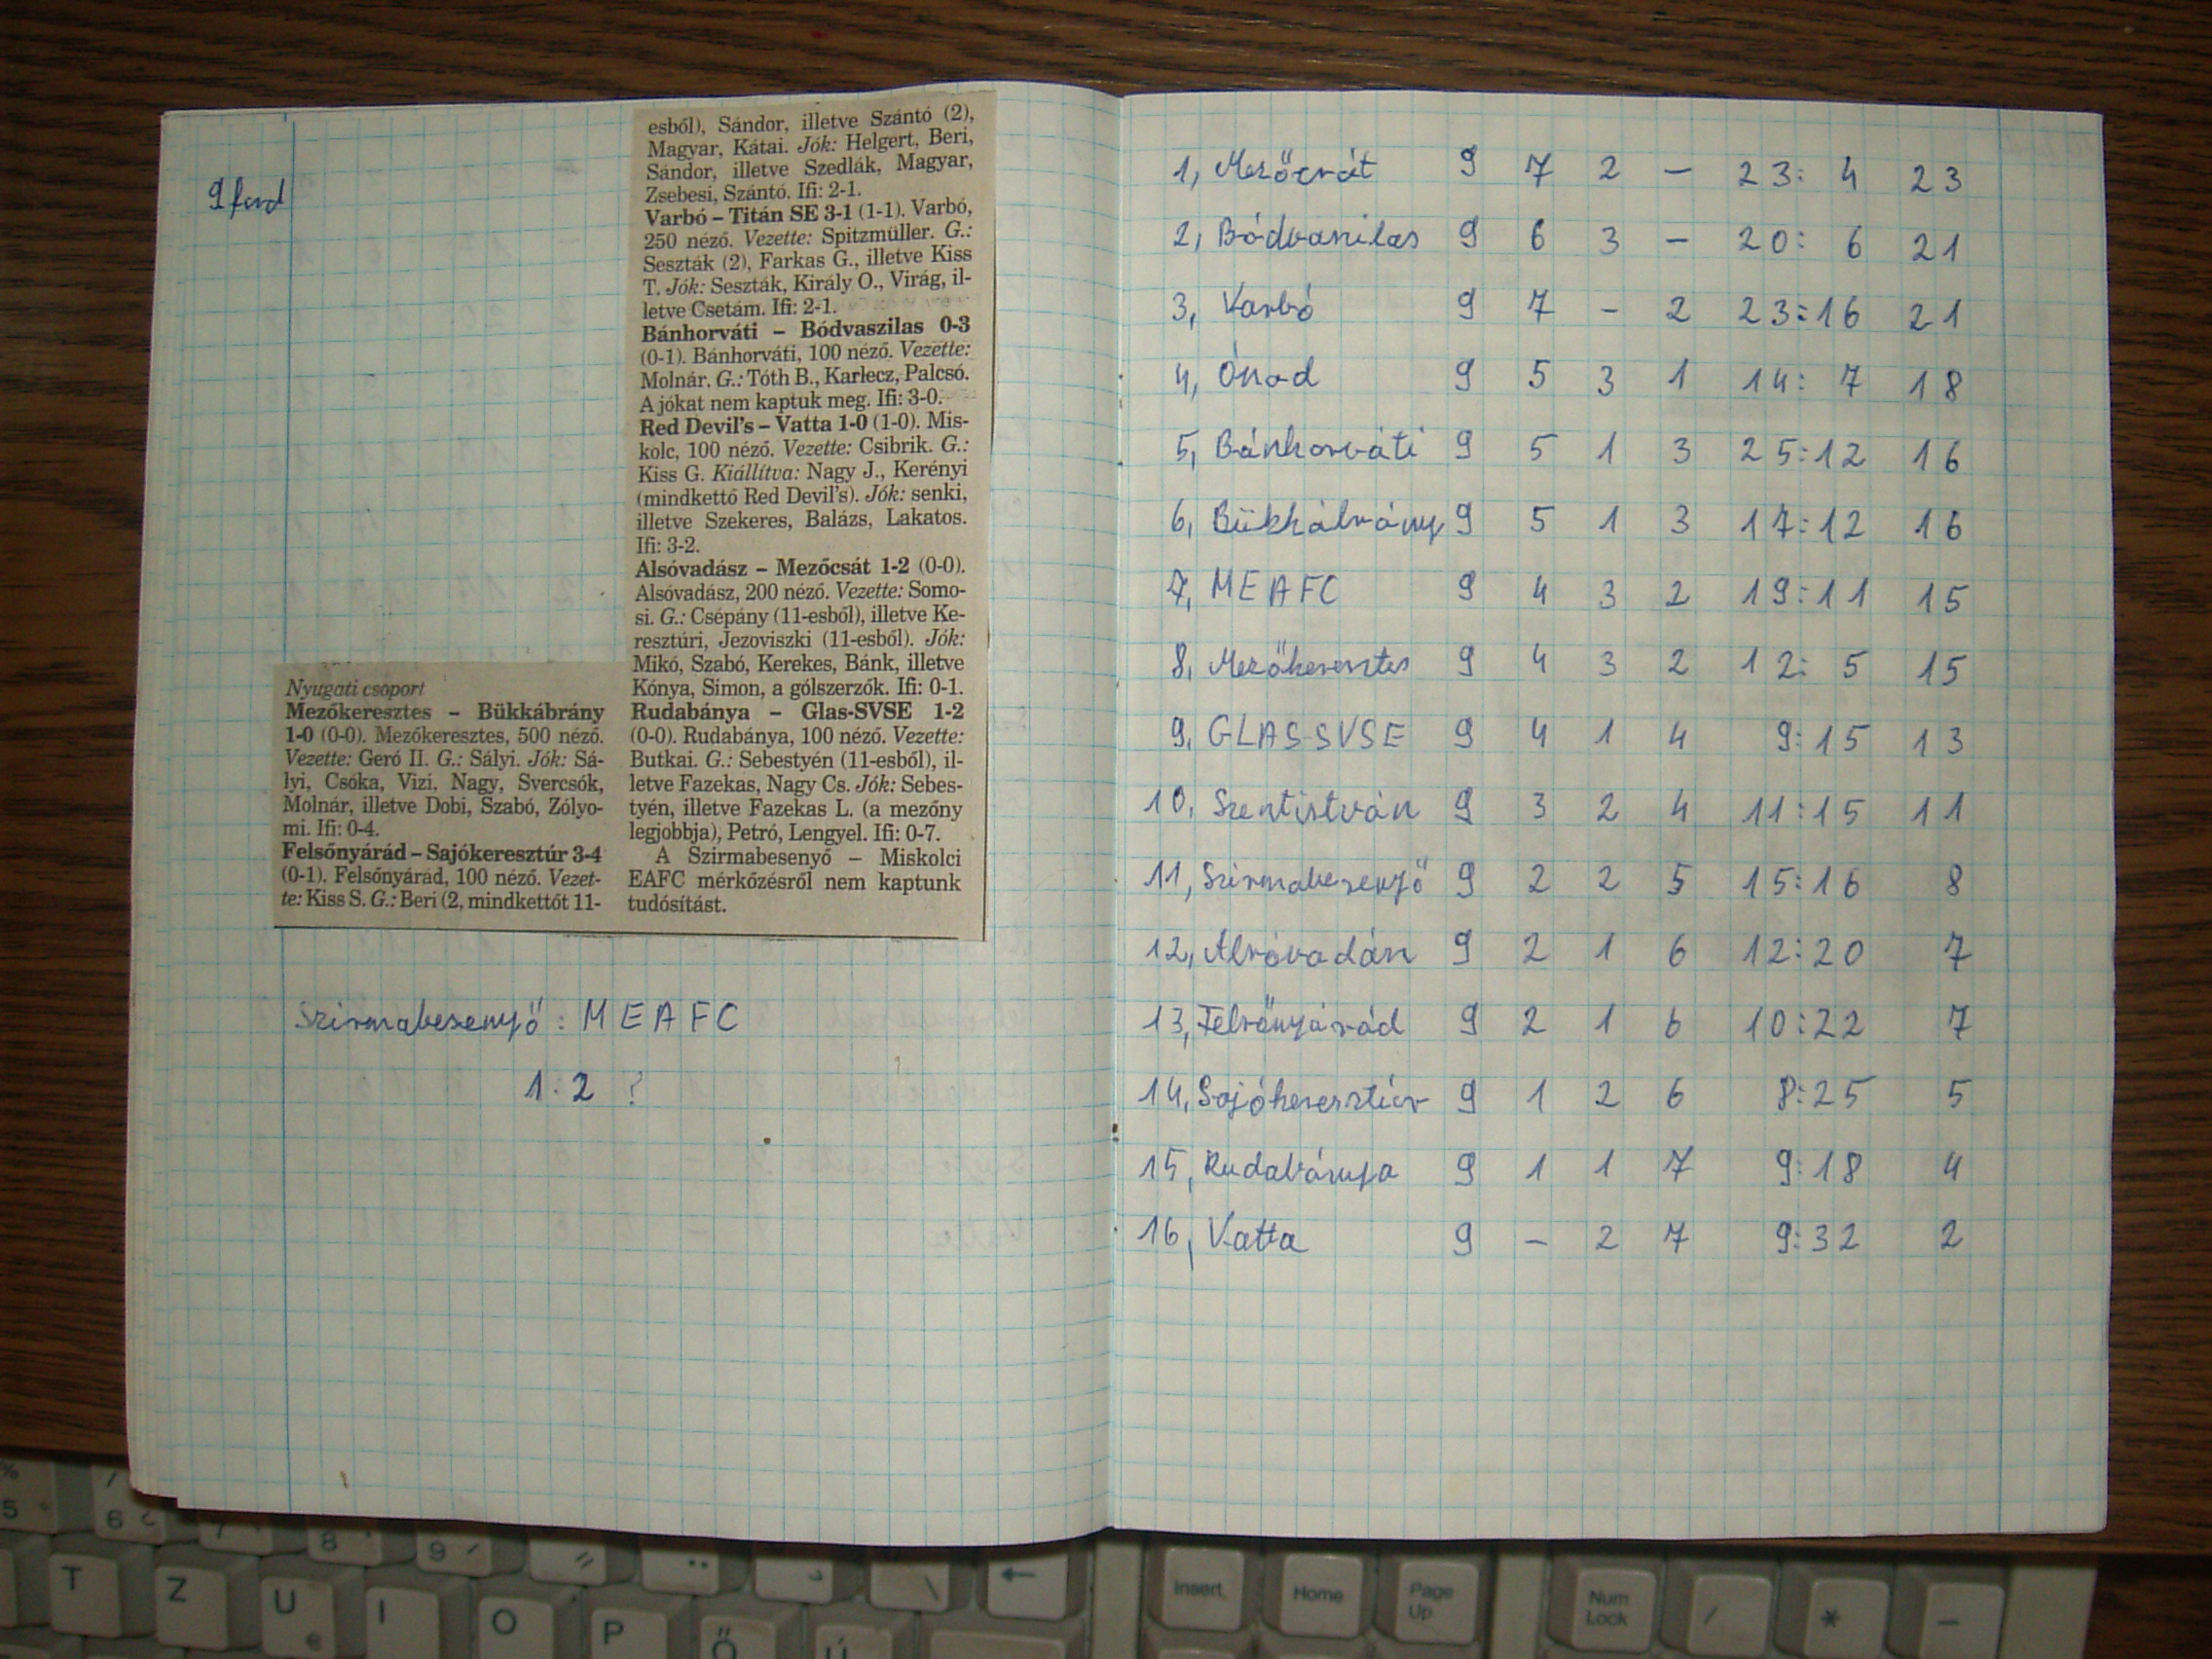 9 ford
Nyugati csoport
Mezőkeresztes – Bükkábrány
1-0 (0-0). Mezőkeresztes, 500 néző.
Vezette: Geró II. G.: Sályi. Jók: Sá-
lyi, Csóka, Vizi, Nagy, Svercsók,
Molnár, illetve Dobi, Szabó, Zólyo-
mi. Ifi: 0-4.
Felsőnyárád – Sajókeresztúr 3-4
(0-1). Felsőnyárád, 100 néző. Vezet-
te: Kiss S. G.: Beri (2, mindkettőt 11-
esből), Sándor, illetve Szántó (2),
Magyar, Kátai. Jók: Helgert, Beri,
Sándor, illetve Szedlák, Magyar,
Zsebesi, Szántó. Ifi: 2-1.
Varbó – Titán SE 3-1 (1-1). Varbó,
250 néző. Vezette: Spitzmüller. G.:
Seszták (2), Farkas G., illetve Kiss
T. Jók: Seszták, Király O., Virág, il-
letve Csetám. Ifi: 2-1.
Bánhorváti – Bódvaszilas 0-3
(0-1). Bánhorváti, 100 néző. Vezette:
Molnár. G.: Tóth B., Karlecz, Palcsó.
A jókat nem kaptuk meg. Ifi: 3-0.
Red Devil's – Vatta 1-0 (1-0). Mis-
kolc, 100 néző. Vezette: Csibrik. G.:
Kiss G. Kiállítva: Nagy J., Kerényi
(mindkettő Red Devil's). Jók: senki,
illetve Szekeres, Balázs, Lakatos.
Ifi: 3-2.
Alsóvadász – Mezőcsát 1-2 (0-0).
Alsóvadász, 200 néző. Vezette: Somo-
si. G.: Csépány (11-esből), illetve Ke-
resztúri, Jezoviszki (11-esből). Jók:
Mikó, Szabó, Kerekes, Bánk, illetve
Kónya, Simon, a gólszerzők. Ifi: 0-1.
Rudabánya – Glas-SVSE 1-2
(0-0). Rudabánya, 100 néző. Vezette:
Butkai. G.: Sebestyén (11-esből), il-
letve Fazekas, Nagy Cs. Jók: Sebes-
tyén, illetve Fazekas L. (a mezőny
legjobbja), Petró, Lengyel. Ifi: 0-7.
A Szirmabesenyő – Miskolci
EAFC mérkőzésről nem kaptunk
tudósítást.
Szirmabesenyő : MEAFC
1:2 ?
1, Mezőcsát 9 7 2 – 23: 4 23
2, Bódvaszilas 9 6 3 – 20: 6 21
3, Varbó 9 7 – 2 23:16 21
4, Ónod 9 5 3 1 14: 7 18
5, Bánhorváti 9 5 1 3 25:12 16
6, Bükkábrány 9 5 1 3 17:12 16
7, MEAFC 9 4 3 2 19:11 15
8, Mezőkeresztes 9 4 3 2 12: 5 15
9, GLAS SVSE 9 4 1 4 9:15 13
10, Szentistván 9 3 2 4 11:15 11
11, Szirmabesenyő 9 2 2 5 15:16 8
12, Alsóvadász 9 2 1 6 12:20 7
13, Felsőnyárád 9 2 1 6 10:22 7
14, Sajókeresztúr 9 1 2 6 8:25 5
15, Rudabánya 9 1 1 7 9:18 4
16, Vatta 9 – 2 7 9:32 2
% 5 6 7 8 9
T Z U I O P Ő Ú
Insert Home Page Up Num Lock / * –